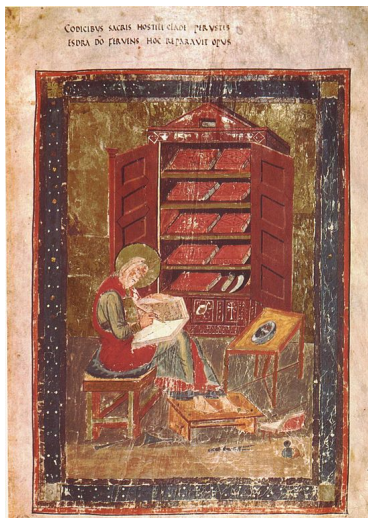 CODICIBUS SACRIS HOSTILI CLADE PERUSTIS
ESDRA DO FERVENS HOC REPARAVIT OPUS